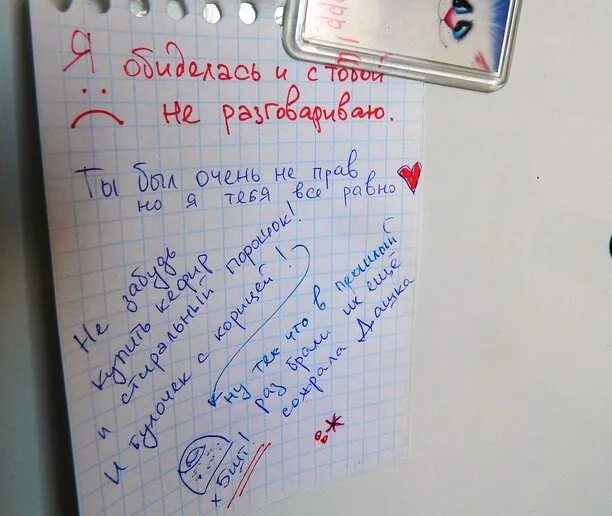 Я обиделась и с тобой
не разговариваю.
Ты был очень не прав
но я тебя всё равно
Не забудь
купить кефир
и стиральный порошок!
и булочек с корицей!
ну тех что в прошлый
раз брали их ещё
сожрала Дашка
x 5шт!